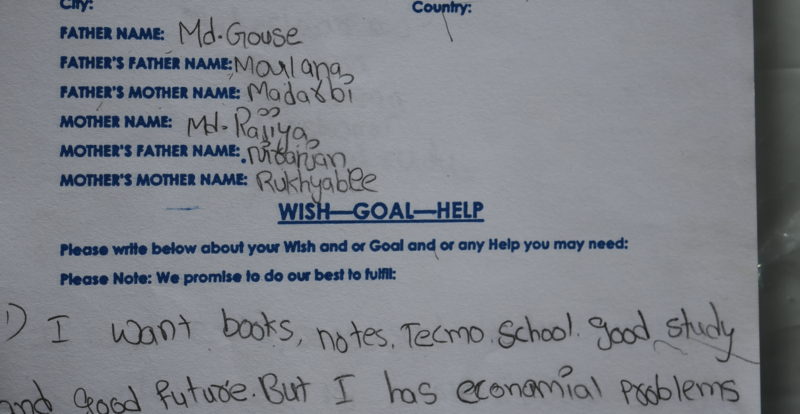 City: Country:
FATHER NAME: Md. Gouse
FATHER'S FATHER NAME: Moulana
FATHER'S MOTHER NAME: Madarbi
MOTHER NAME: Md. Rajiya
MOTHER'S FATHER NAME:
MOTHER'S MOTHER NAME: Rukhyabee
WISH—GOAL—HELP
Please write below about your Wish and or Goal and or any Help you may need:
Please Note: We promise to do our best to fulfil:
1) I want books, notes. Tecmo. School. good study
and good future. But I has economial problems